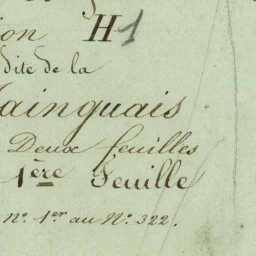 ion H1
dite de la
ainguais
Deux feuilles
1ère Feuille
n°. 1er au N°. 322.